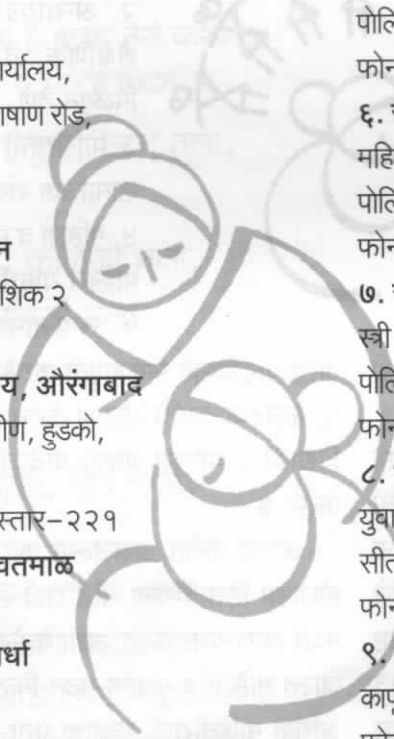 र्यालय,
षाण रोड,
न
शिक २
य, औरंगाबाद
ीण, हुडको,
स्तार-२२१
वतमाळ
र्धा
पोलि
फोन
६.
महि
पोलि
फोन
७.
स्त्री
पोलि
फोन
८.
युवा
सीत
फोन
९.